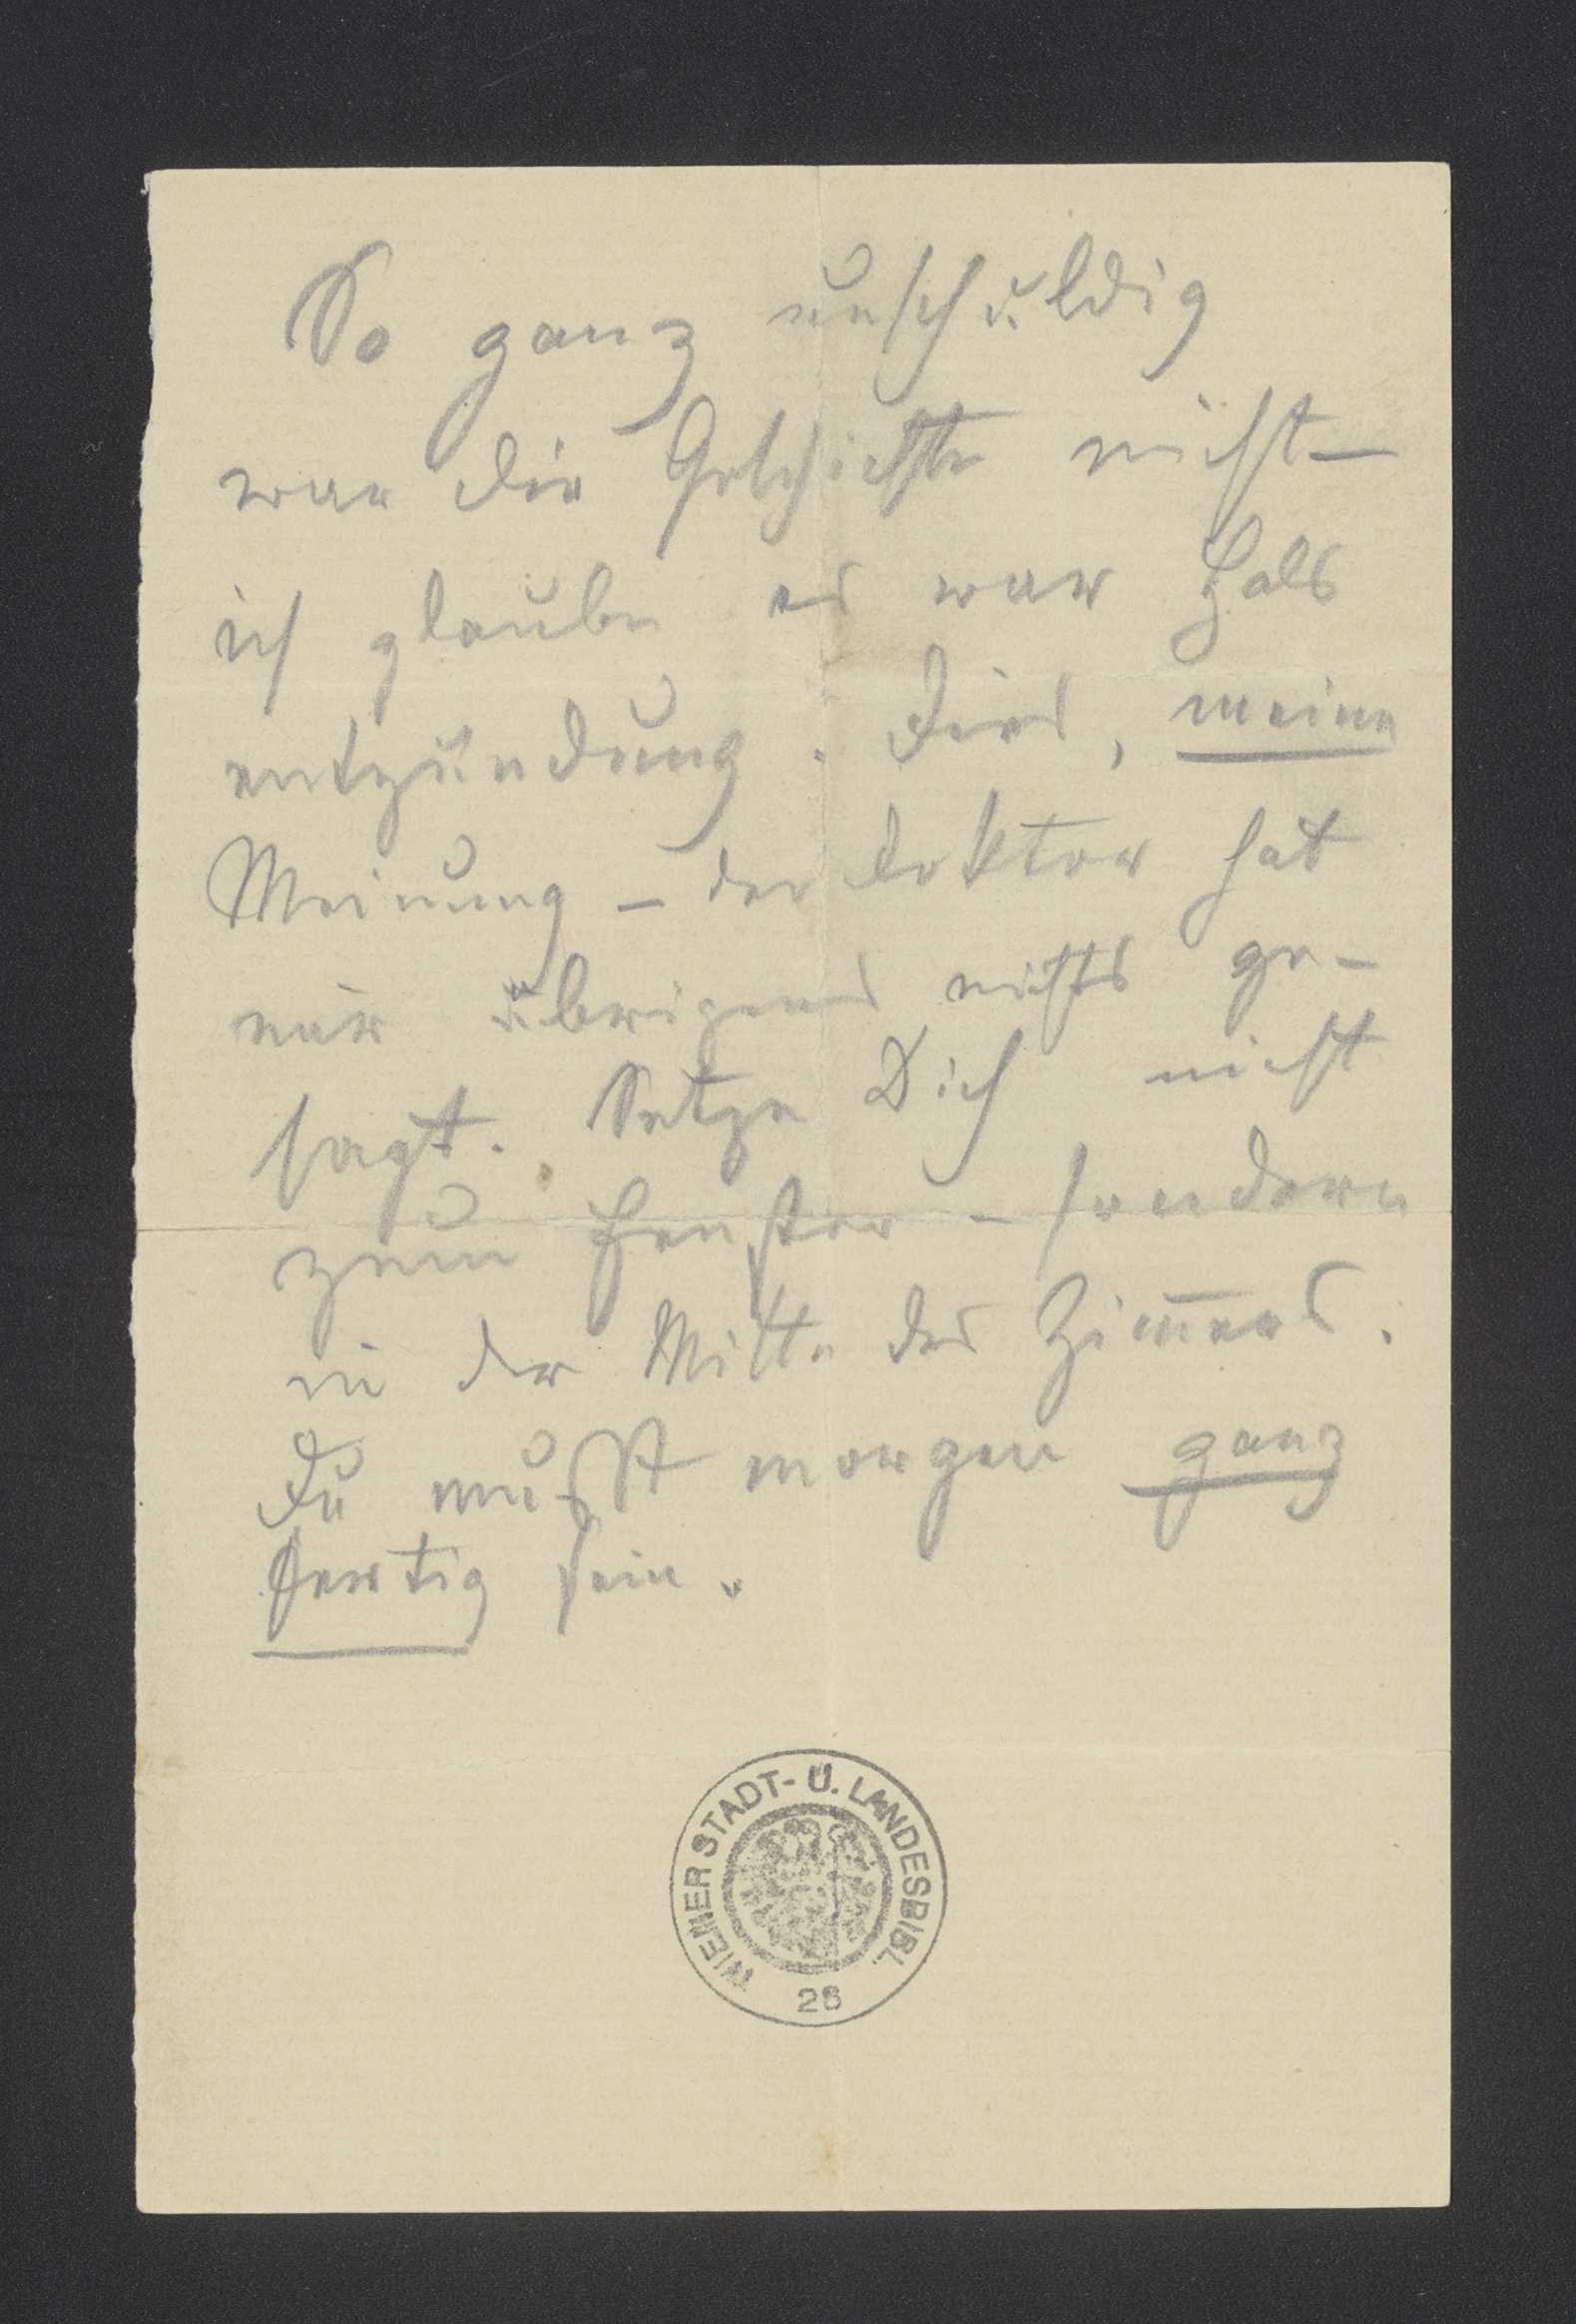 So ganz unschuldig
war die Geschichte nicht –
ich glaube es war Hals
entzündung. Dies, meine
Meinung – der Doktor hat
mir übrigens nichts ge-
sagt. Setze Dich nicht
zum Fenster – sondern
in der Mitte des Zim̅ers.
Du mußt morgen ganz
fertig sein.
WIENER STADT- U. LANDESBIBL.
26